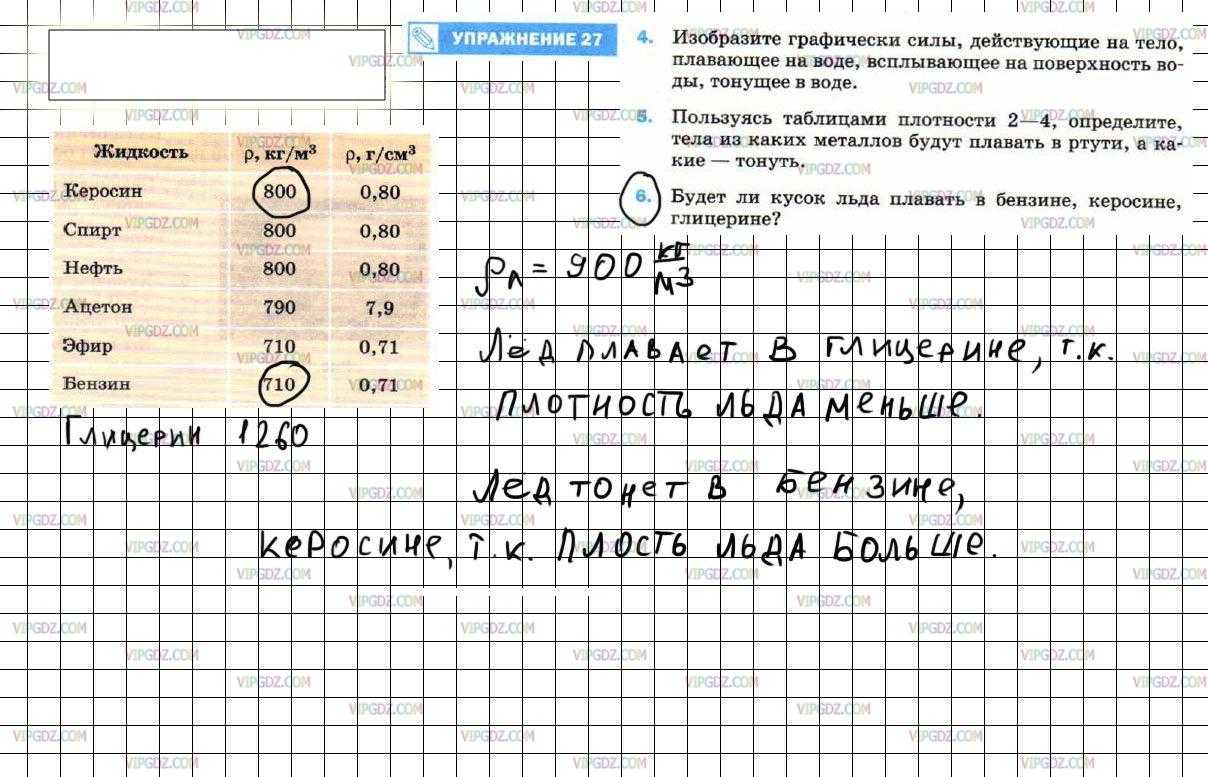 УПРАЖНЕНИЕ 27
4. Изобразите графически силы, действующие на тело,
плавающее на воде, всплывающее на поверхность во-
ды, тонущее в воде.
5. Пользуясь таблицами плотности 2—4, определите,
тела из каких металлов будут плавать в ртути, а ка-
кие — тонуть.
6. Будет ли кусок льда плавать в бензине, керосине,
глицерине?
Жидкость ρ, кг/м³ ρ, г/см³
Керосин 800 0,80
Спирт 800 0,80
Нефть 800 0,80
Ацетон 790 7,9
Эфир 710 0,71
Бензин 710 0,71
Глицерин 1260
ρл = 900 кг/м3
Лёд плавает в глицерине, т.к.
плотность льда меньше.
Лед тонет в бензине,
керосине, т.к. плость льда больше.
VIPGDZ.COM